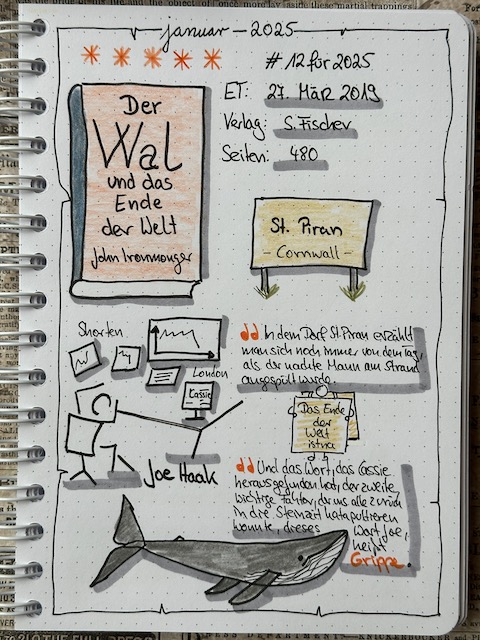 Januar - 2025
# 12 für 2025
ET: 27. MÄR 2019
Verlag: S. Fischer
Seiten: 480
Der
Wal
und das
Ende
der Welt
John Ironmonger
St. Piran
- Cornwall -
Shorten
London
Cassie
Joe Haak
In dem Dorf St. Piran erzählt
man sich noch immer von dem Tag,
als der nackte Mann am Strand
angespült wurde.
Das Ende
der
Welt
ist na
Und das Wort, das Cassie
herausgefunden hat, der zweite
wichtige Faktor, der uns alle zurück
in die Steinzeit katapultieren
könnte, dieses Wort Joe,
heißt
Grippe.